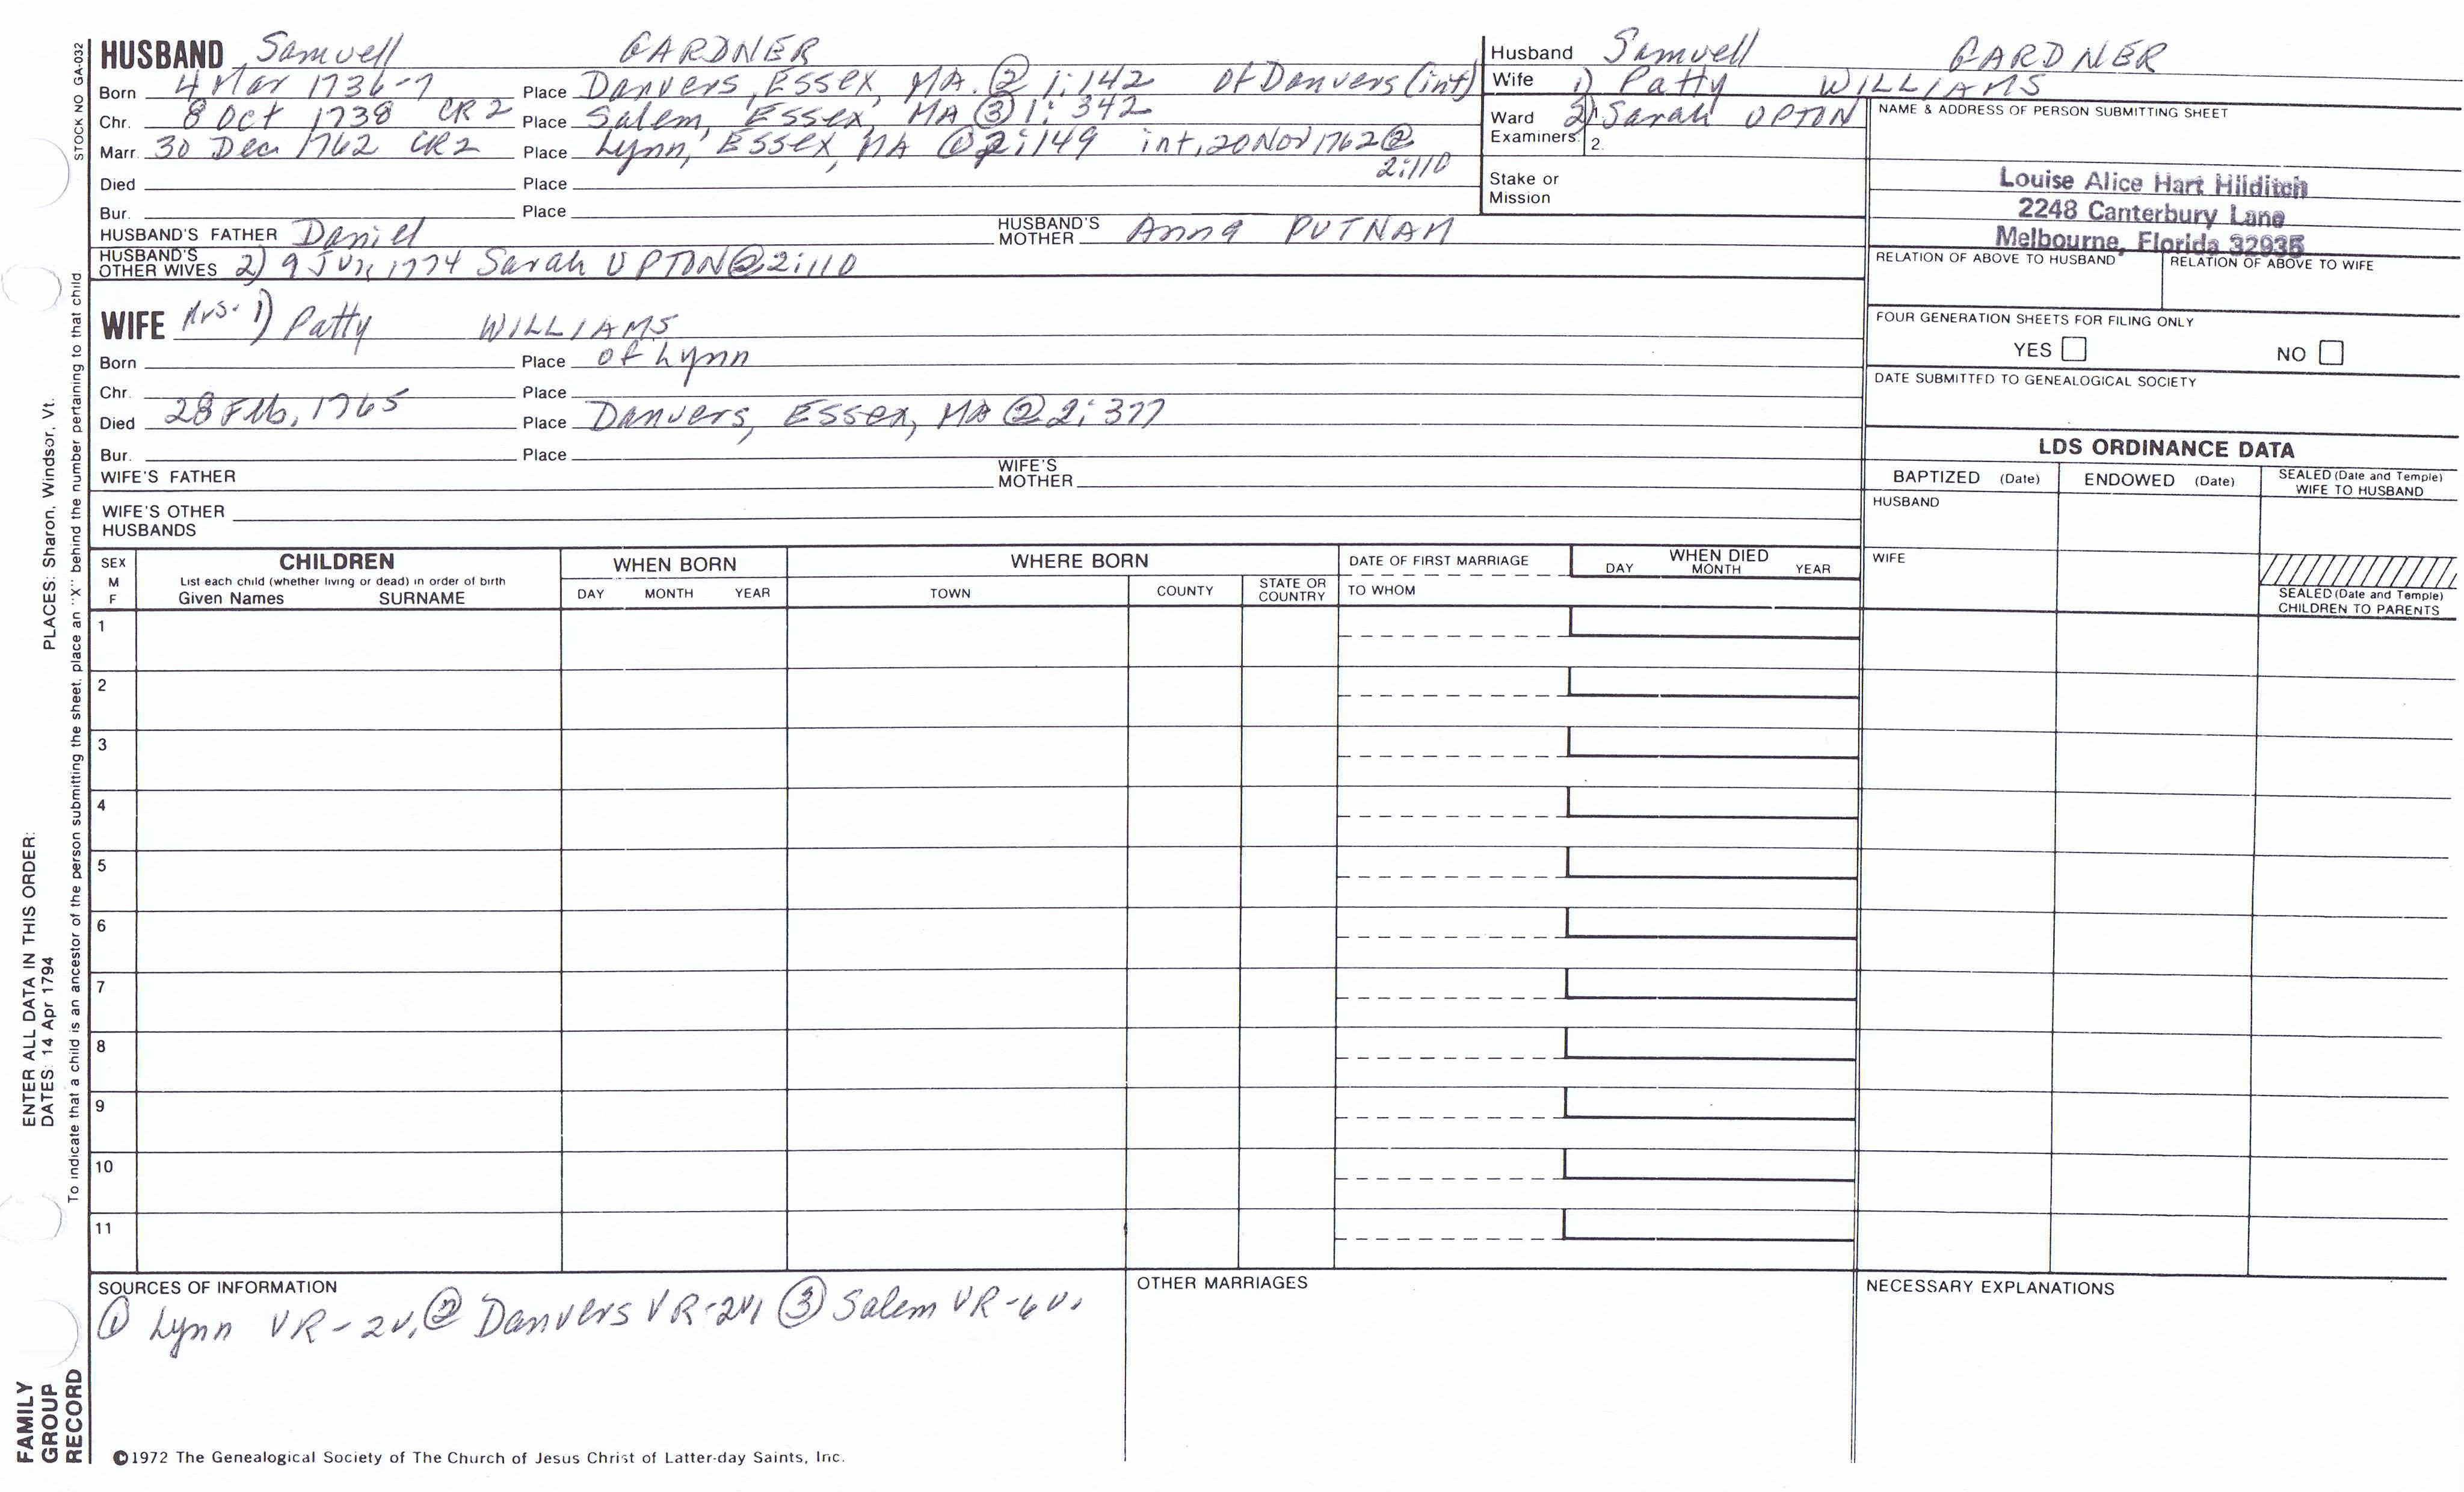 STOCK NO GA-032
HUSBAND Samuell GARDNER
Born 4 Mar 1736-7 Place Danvers, Essex, MA. ② 1:142 of Danvers (int)
Chr. 8 Oct 1738 CR2 Place Salem, Essex, MA ③ 1:342
Marr. 30 Dec 1762 CR2 Place Lynn, Essex, MA ① 2:149 int, 20 Nov 1762 ②
2:110
Died Place
Bur. Place
HUSBAND'S FATHER Daniel HUSBAND'S MOTHER Anna PUTNAM
HUSBAND'S OTHER WIVES 2) 9 Jun 1774 Sarah UPTON @ 2:110
WIFE Mrs. 1) Patty WILLIAMS
Born Place of Lynn
Chr. Place
Died 28 Feb, 1765 Place Danvers, Essex, MA ② 2:377
Bur. Place
WIFE'S FATHER WIFE'S MOTHER
WIFE'S OTHER HUSBANDS
Husband Samuell GARDNER
Wife 1) Patty WILLIAMS
Ward 2) Sarah UPTON
Examiners: 2.
Stake or Mission
NAME & ADDRESS OF PERSON SUBMITTING SHEET
Louise Alice Hart Hilditch
2248 Canterbury Lane
Melbourne, Florida 32935
RELATION OF ABOVE TO HUSBAND RELATION OF ABOVE TO WIFE
FOUR GENERATION SHEETS FOR FILING ONLY
YES NO
DATE SUBMITTED TO GENEALOGICAL SOCIETY
LDS ORDINANCE DATA
BAPTIZED (Date) ENDOWED (Date) SEALED (Date and Temple) WIFE TO HUSBAND
HUSBAND
WIFE
SEALED (Date and Temple) CHILDREN TO PARENTS
SEX M F
CHILDREN
List each child (whether living or dead) in order of birth
Given Names SURNAME
WHEN BORN
DAY MONTH YEAR
WHERE BORN
TOWN COUNTY STATE OR COUNTRY
DATE OF FIRST MARRIAGE
TO WHOM
WHEN DIED
DAY MONTH YEAR
1
2
3
4
5
6
7
8
9
10
11
SOURCES OF INFORMATION
① Lynn VR-2v, ② Danvers VR-2v, ③ Salem VR-6v.
OTHER MARRIAGES
NECESSARY EXPLANATIONS
©1972 The Genealogical Society of The Church of Jesus Christ of Latter-day Saints, Inc.
FAMILY
GROUP
RECORD
ENTER ALL DATA IN THIS ORDER:
DATES: 14 Apr 1794 PLACES: Sharon, Windsor, Vt.
To indicate that a child is an ancestor of the person submitting the sheet, place an "X" behind the number pertaining to that child